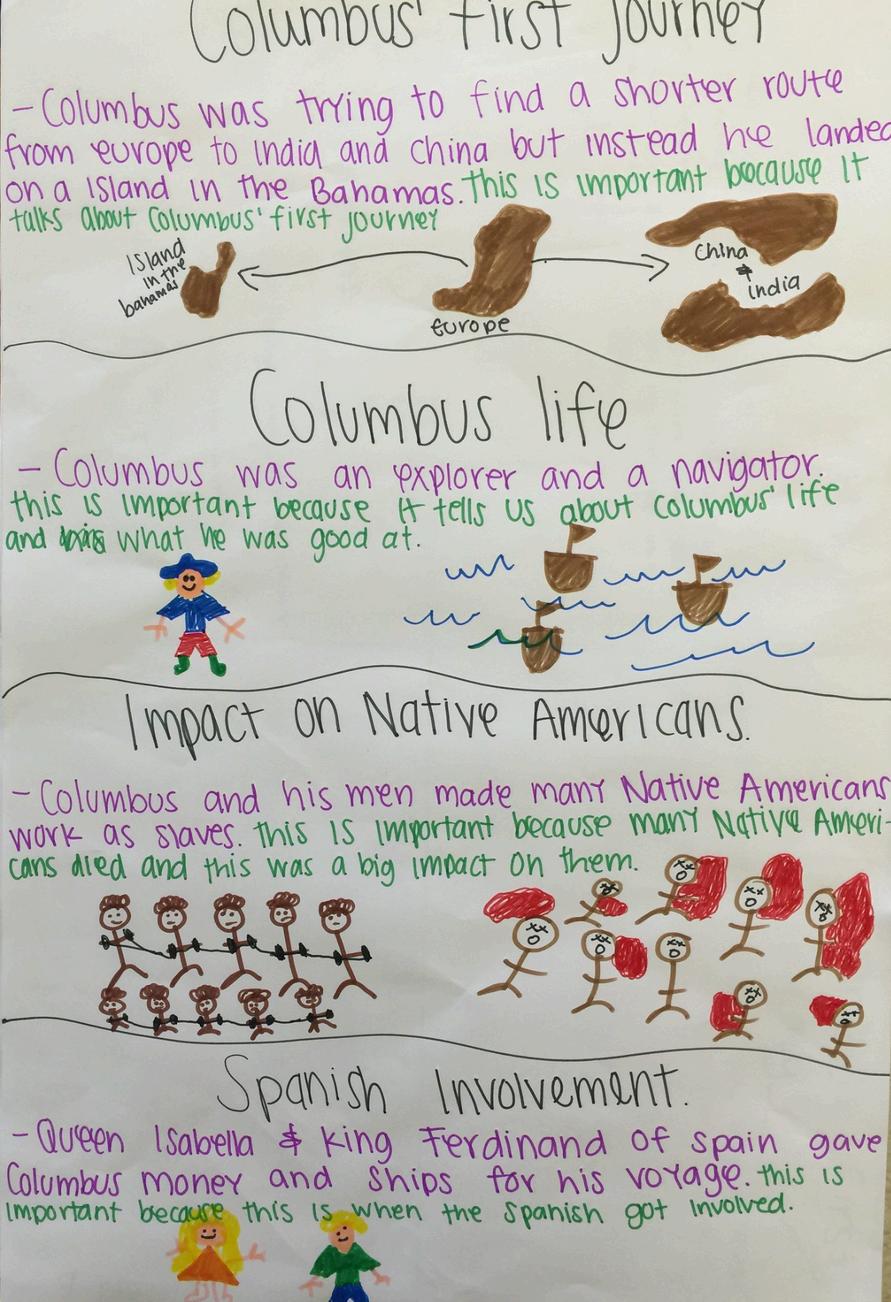 Columbus' first Journey
- Columbus was trying to find a shorter route
from europe to India and china but instead he landed
on a Island in the Bahamas. this is important because it
talks about Columbus' first journey
Island
in the
bahamas
europe
China
&
india
Columbus life
- Columbus was an explorer and a navigator.
this is important because it tells us about Columbus' life
and what he was good at.
Impact on Native Americans.
- Columbus and his men made many Native Americans
work as slaves. this is important because many Native Ameri-
cans died and this was a big impact on them.
Spanish Involvement.
- Queen Isabella & King Ferdinand of spain gave
Columbus money and ships for his voyage. this is
important because this is when the spanish got involved.